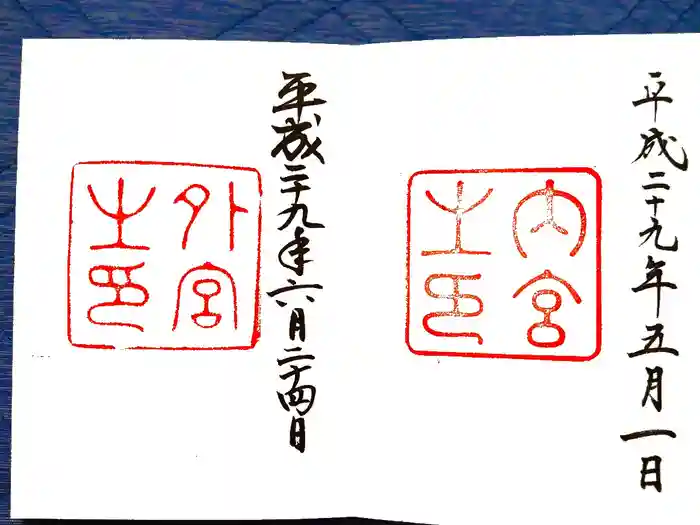 平成二十九年五月一日
内宮
之印
平成二十九年六月二十四日
外宮
之印